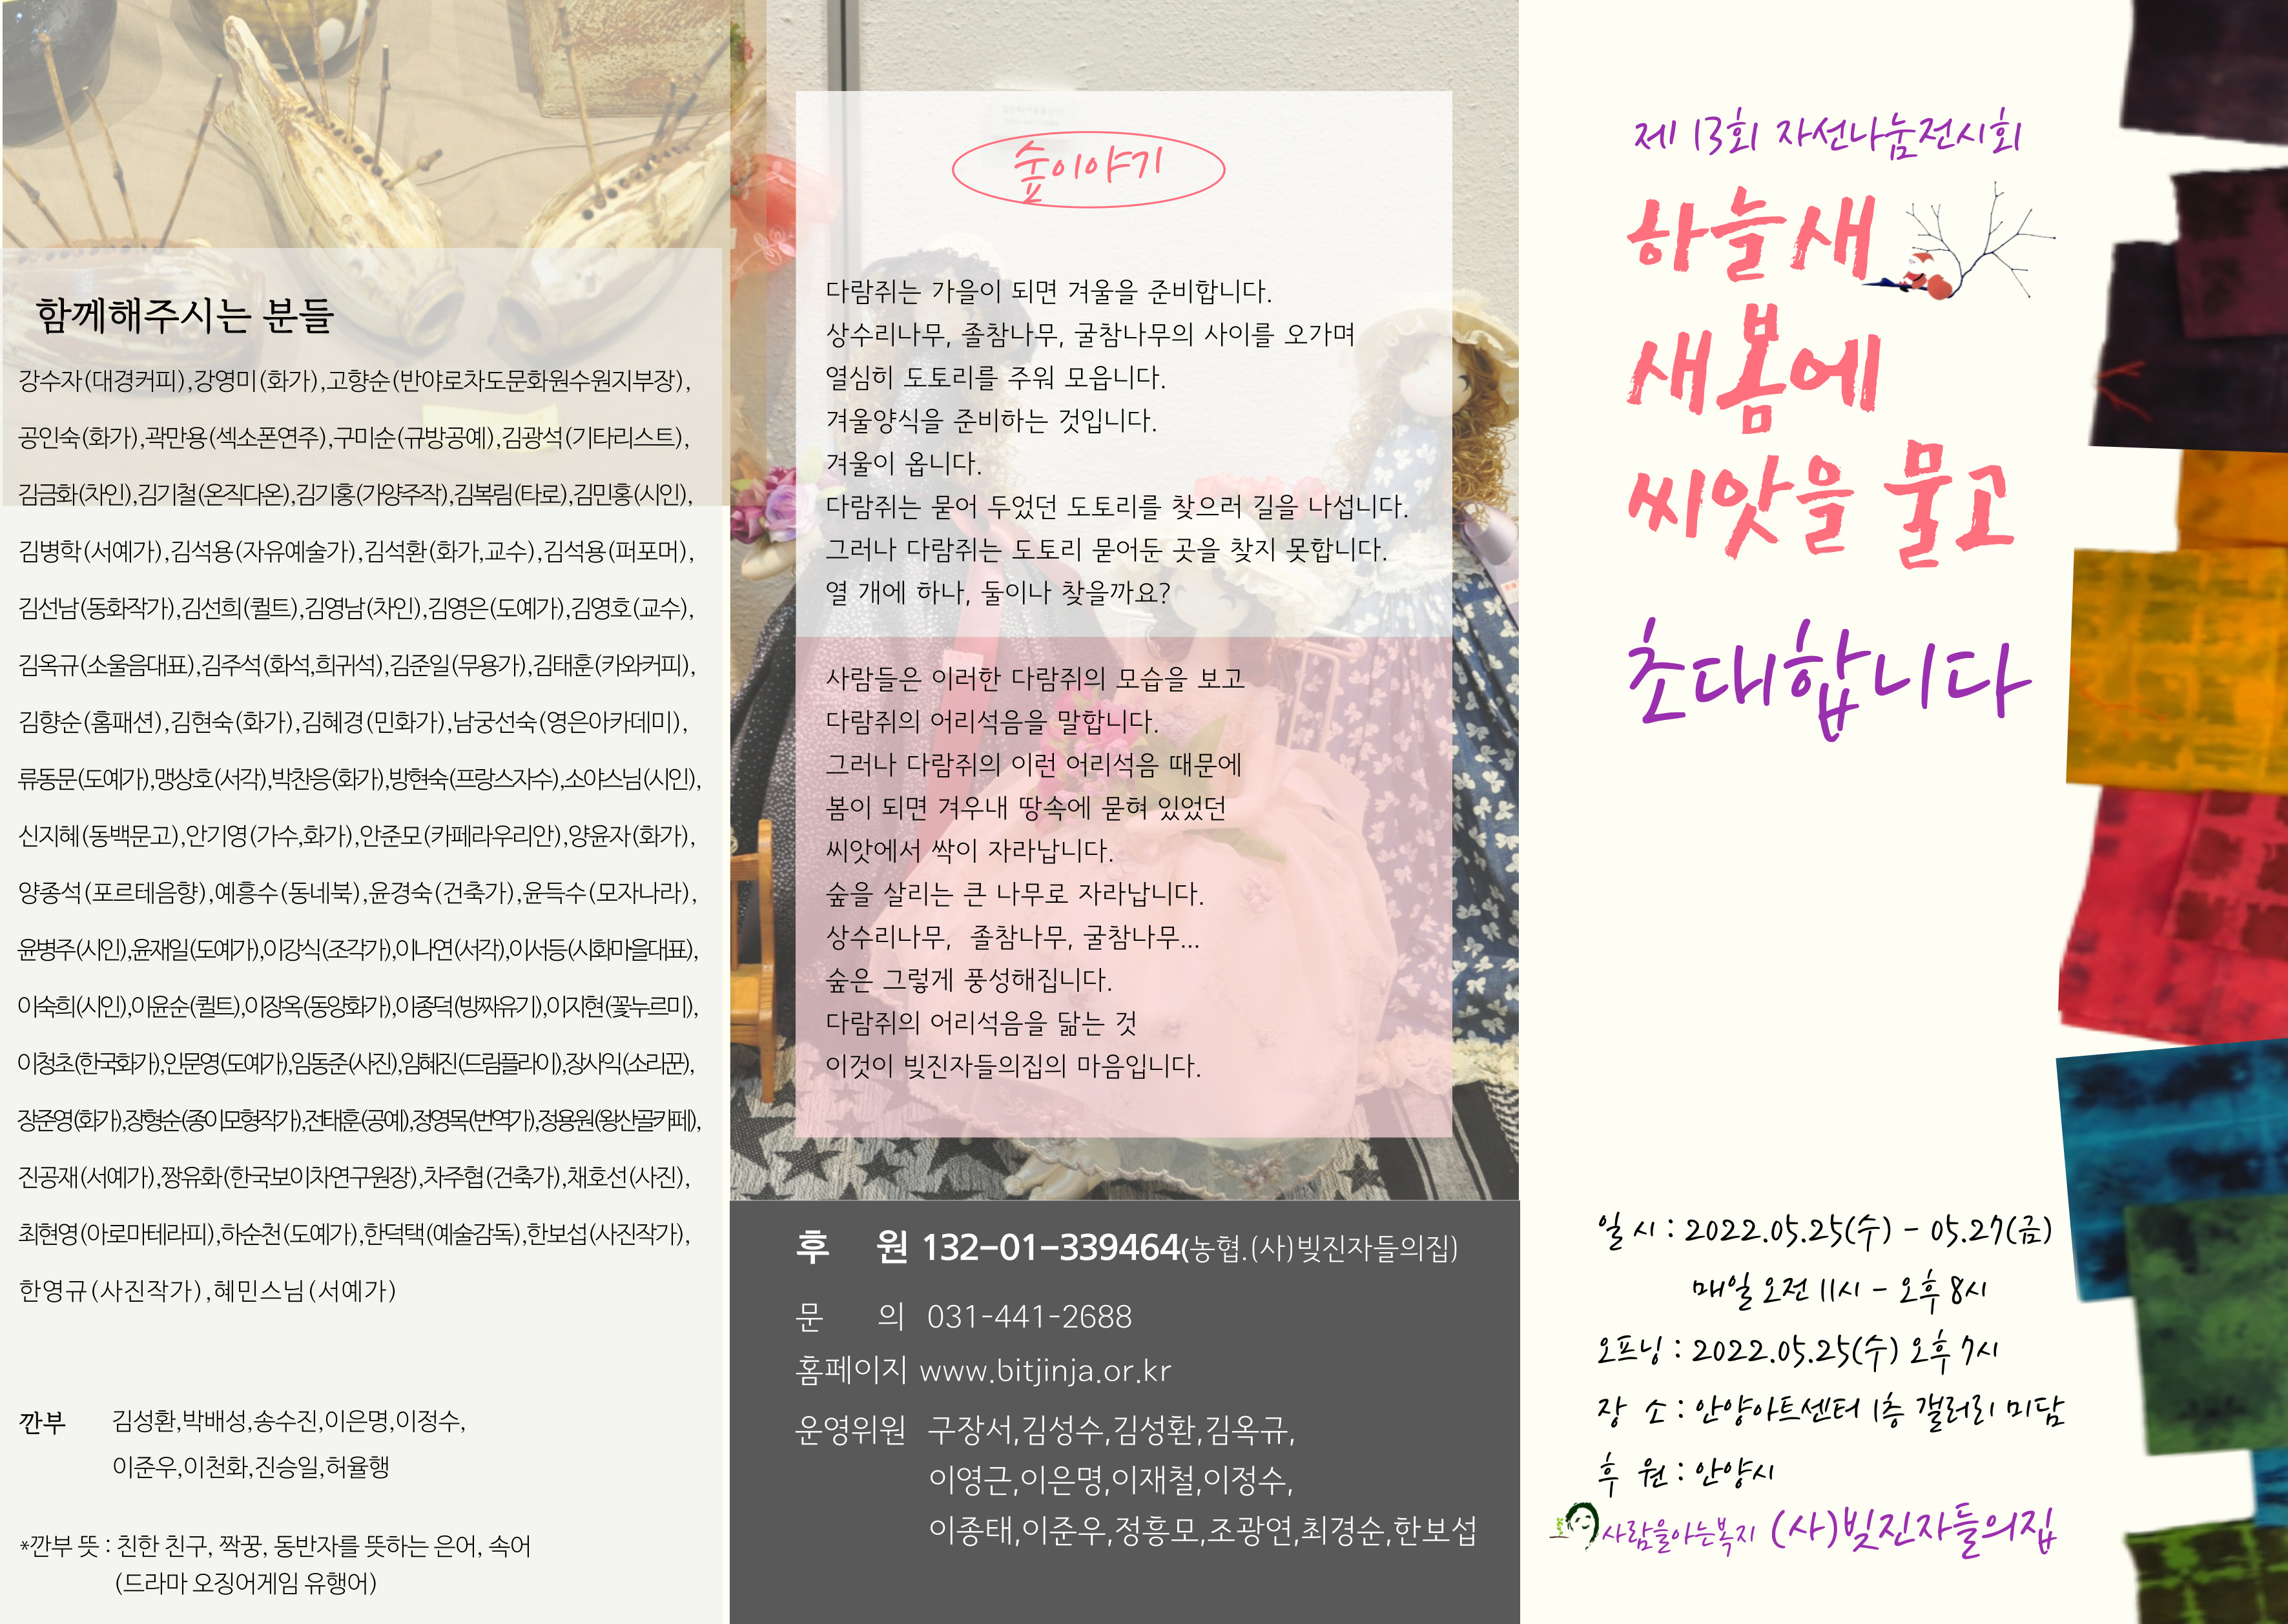 함께해주시는 분들
강수자(대경커피),강영미(화가),고향순(반야로차도문화원수원지부장),
공인숙(화가),곽만용(섹소폰연주),구미순(규방공예),김광석(기타리스트),
김금화(차인),김기철(온직다온),김기홍(가양주작),김복림(타로),김민홍(시인),
김병학(서예가),김석용(자유예술가),김석환(화가,교수),김석용(퍼포머),
김선남(동화작가),김선희(퀼트),김영남(차인),김영은(도예가),김영호(교수),
김옥규(소울음대표),김주석(화석,희귀석),김준일(무용가),김태훈(카와커피),
김향순(홈패션),김현숙(화가),김혜경(민화가),남궁선숙(영은아카데미),
류동문(도예가),맹상호(서각),박찬응(화가),방현숙(프랑스자수),소야스님(시인),
신지혜(동백문고),안기영(가수,화가),안준모(카페라우리안),양윤자(화가),
양종석(포르테음향),예흥수(동네북),윤경숙(건축가),윤득수(모자나라),
윤병주(시인),윤재일(도예가),이강식(조각가),이나연(서각),이서등(시화마을대표),
이숙희(시인),이윤순(퀼트),이장옥(동양화가),이종덕(방짜유기),이지현(꽃누르미),
이청초(한국화가),인문영(도예가),임동준(사진),임혜진(드림플라이),장사익(소리꾼),
장준영(화가),장형순(종이모형작가),전태훈(공예),정영목(번역가),정용원(왕산골카페),
진공재(서예가),짱유화(한국보이차연구원장),차주협(건축가),채호선(사진),
최현영(아로마테라피),하순천(도예가),한덕택(예술감독),한보섭(사진작가),
한영규(사진작가),혜민스님(서예가)
깐부 김성환,박배성,송수진,이은명,이정수,
이준우,이천화,진승일,허율행
*깐부 뜻 : 친한 친구, 짝꿍, 동반자를 뜻하는 은어, 속어
(드라마 오징어게임 유행어)
숲이야기
다람쥐는 가을이 되면 겨울을 준비합니다.
상수리나무, 졸참나무, 굴참나무의 사이를 오가며
열심히 도토리를 주워 모읍니다.
겨울양식을 준비하는 것입니다.
겨울이 옵니다.
다람쥐는 묻어 두었던 도토리를 찾으러 길을 나섭니다.
그러나 다람쥐는 도토리 묻어둔 곳을 찾지 못합니다.
열 개에 하나, 둘이나 찾을까요?
사람들은 이러한 다람쥐의 모습을 보고
다람쥐의 어리석음을 말합니다.
그러나 다람쥐의 이런 어리석음 때문에
봄이 되면 겨우내 땅속에 묻혀 있었던
씨앗에서 싹이 자라납니다.
숲을 살리는 큰 나무로 자라납니다.
상수리나무, 졸참나무, 굴참나무...
숲은 그렇게 풍성해집니다.
다람쥐의 어리석음을 닮는 것
이것이 빚진자들의집의 마음입니다.
후 원 132-01-339464(농협.(사)빚진자들의집)
문 의 031-441-2688
홈페이지 www.bitjinja.or.kr
운영위원 구장서,김성수,김성환,김옥규,
이영근,이은명,이재철,이정수,
이종태,이준우,정흥모,조광연,최경순,한보섭
제13회 자선나눔전시회
하늘새
새봄에
씨앗을 물고
초대합니다
일 시 : 2022.05.25(수) - 05.27(금)
매일 오전 11시 - 오후 8시
오프닝 : 2022.05.25(수) 오후 7시
장 소 : 안양아트센터 1층 갤러리 미담
후 원 : 안양시
사람을아는복지 (사)빚진자들의집